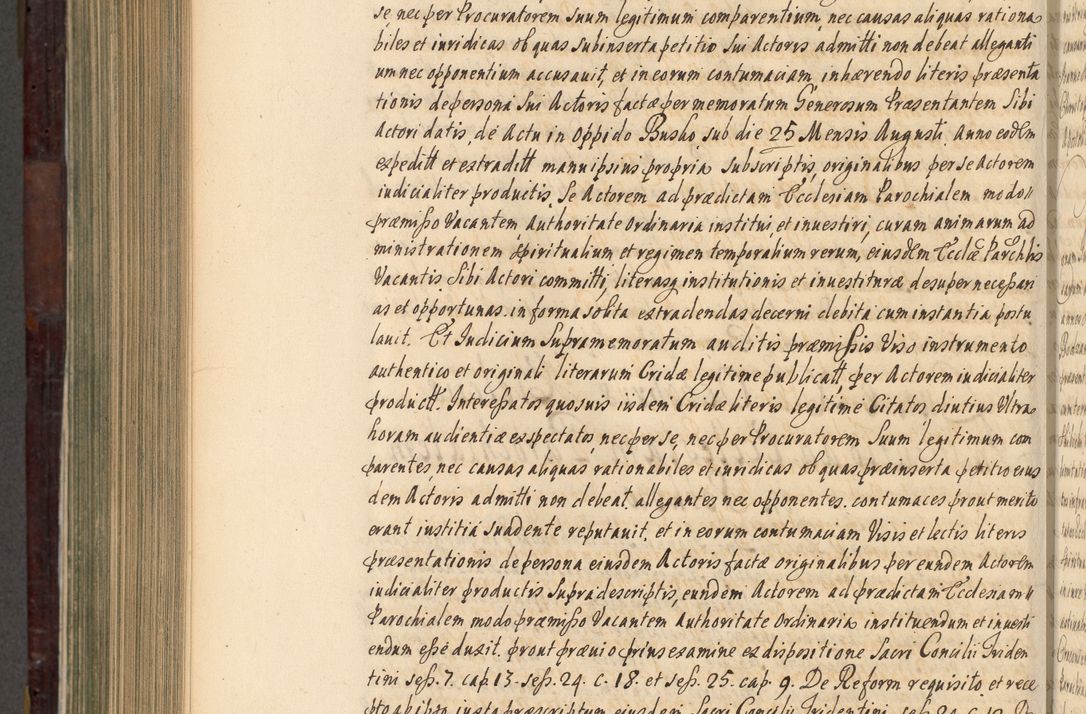 se, nec per Procuratorem suum legitimum comparentium, nec causas aliquas rationa
biles et iuridicas ob quas subinserta petitio sui Actoris admitti non debeat alleganti
um nec opponentium accusauit, et in eorum contumaciam inhærendo literis præsenta
tionis de persona sui Actoris factæ per memoratum Generosum Præsentantem Sibi
Actori datis, de Actu in Oppido Busko, sub die 25 Mensis Augusti Anno eodem
expeditt et extraditt manu ipsius propria subscriptis, originalibus per se Actorem
iudicialiter productis, Se Actorem ad prædictam Ecclesiam Parochialem modo
præmisso Vacantem, Authoritate Ordinaria institui, et inuestiri, curam animarum ad
ministrationem spiritualium et regimen temporalium rerum, eiusdem Ecclæ Parchlis
Vacantis, Sibi Actori committi, literasq institutionis et inuestituræ desuper necessari
as et opportunas in forma solita extradendas decerni debita cum instantia postu
lauit. Et Iudicium Supramemoratum auditis præmissis Viso instrumento
authentico et originali literarum Cridæ legitime publicatt per Actorem iudicialiter
productt. Interessatos quosuis iisdem Cridæ literis legitime Citatos, diutius Ultra
horam audientiæ expectatos, nec per se, nec per Procuratorem Suum legitimum com
parentes, nec causas aliquas rationabiles et iuridicas ob quas præinserta petitio eius
dem Actoris admitti non debeat allegantes nec opponentes. contumaces prout merito
erant iustitiâ suadente reputauit, et in eorum contumaciam Visis et lectis literis
præsentationis de persona eiusdem Actoris factæ originalibus per eundem Actorem
iudicialiter productis Supradescriptis, eundem Actorem ad prædictam Ecclesiam
Parochialem modo præmisso Vacantem Authoritate Ordinaria instituendum et inuesti
endum esse duxit. prout præuio prius examine ex dispositione Sacri Concilii Triden
tini sess. 7. cap. 13. sess. 24. c. 18. et sess. 25. cap. 9. De Reform requisito et rece
pto ab ipso iuxta præscriptum eiusdem Sacri Concilii Tridentini